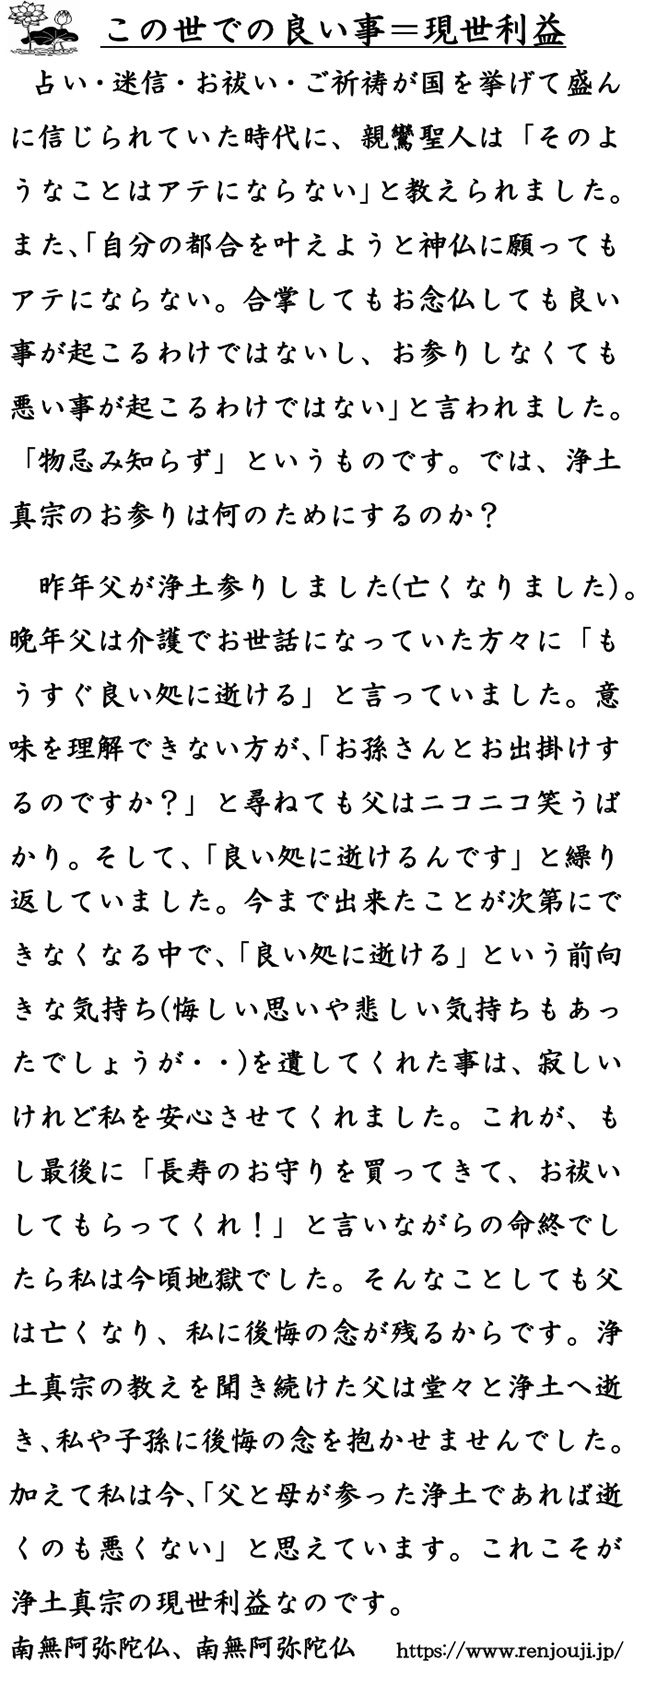 この世での良い事＝現世利益
占い・迷信・お祓い・ご祈祷が国を挙げて盛ん
に信じられていた時代に、親鸞聖人は「そのよ
うなことはアテにならない」と教えられました。
また、「自分の都合を叶えようと神仏に願っても
アテにならない。合掌してもお念仏しても良い
事が起こるわけではないし、お参りしなくても
悪い事が起こるわけではない」と言われました。
「物忌み知らず」というものです。では、浄土
真宗のお参りは何のためにするのか？
昨年父が浄土参りしました(亡くなりました)。
晩年父は介護でお世話になっていた方々に「も
うすぐ良い処に逝ける」と言っていました。意
味を理解できない方が、「お孫さんとお出掛けす
るのですか？」と尋ねても父はニコニコ笑うば
かり。そして、「良い処に逝けるんです」と繰り
返していました。今まで出来たことが次第にで
きなくなる中で、「良い処に逝ける」という前向
きな気持ち(悔しい思いや悲しい気持ちもあっ
たでしょうが・・)を遺してくれた事は、寂しい
けれど私を安心させてくれました。これが、も
し最後に「長寿のお守りを買ってきて、お祓い
してもらってくれ！」と言いながらの命終でし
たら私は今頃地獄でした。そんなことしても父
は亡くなり、私に後悔の念が残るからです。浄
土真宗の教えを聞き続けた父は堂々と浄土へ逝
き、私や子孫に後悔の念を抱かせませんでした。
加えて私は今、「父と母が参った浄土であれば逝
くのも悪くない」と思えています。これこそが
浄土真宗の現世利益なのです。
南無阿弥陀仏、南無阿弥陀仏 https://www.renjouji.jp/